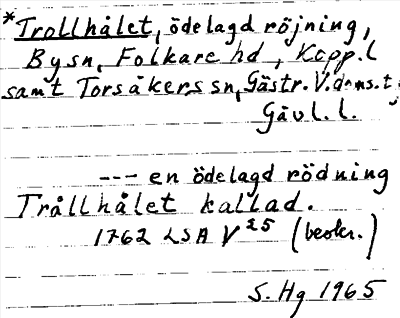 *Trollhålet, ödelagd röjning,
By sn, Folkare hd, Kopp. l
samt Torsåkers sn, Gästr. V. doms. t,
Gävl. l.
--- en ödelagd rödning
Trållhålet kallad.
1762 LSA V25 (beskr.)
S. Hg 1965